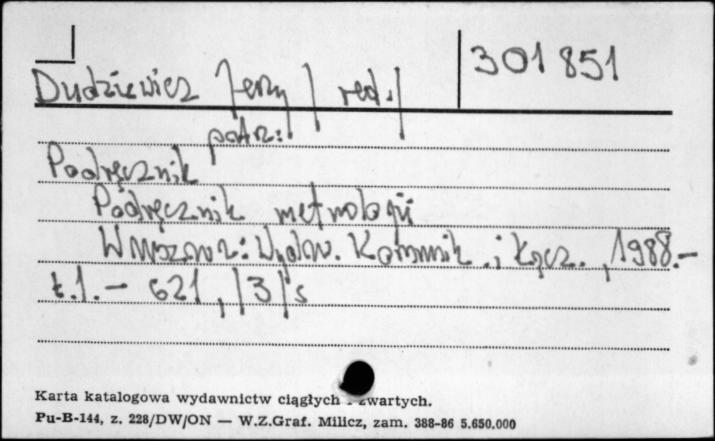 301851
Dudziewicz Jerzy / red./
patrz:
Podręcznik
Podręcznik metrologii
Warszawa: Wydaw. Komunik. i Łącz., 1988.-
t.1.- 621, /3/ s
Karta katalogowa wydawnictw ciągłych zwartych.
Pu-B-144, z. 228/DW/ON — W.Z.Graf. Milicz, zam. 388-86 5.650.000